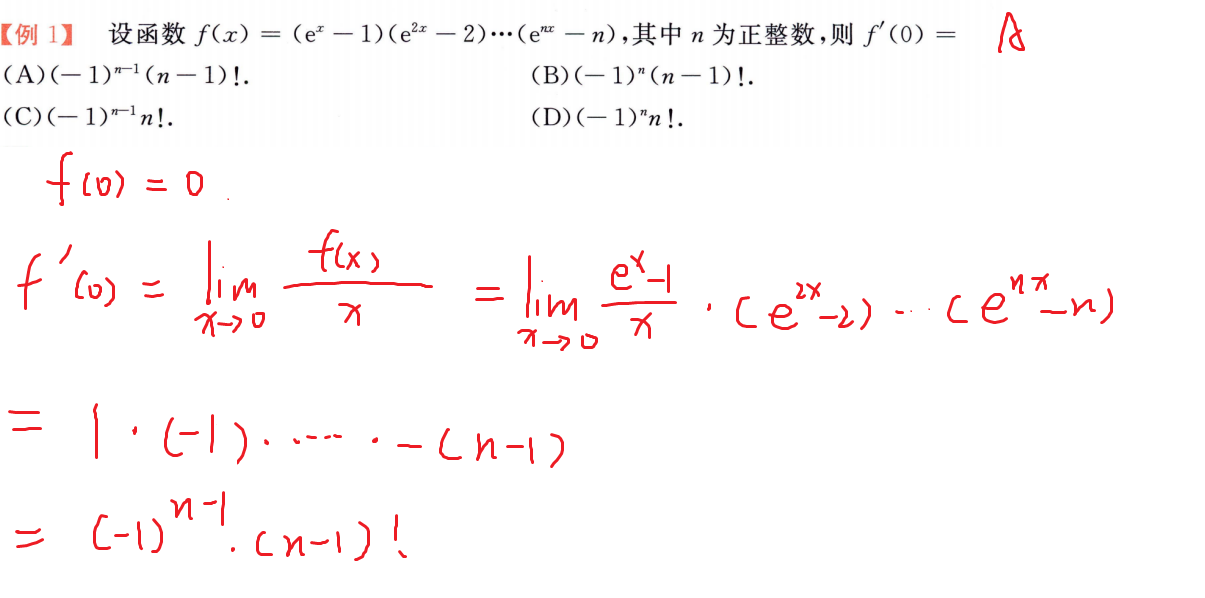 【例 1】 设函数 f(x) = (eˣ − 1)(e²ˣ − 2)⋯(eⁿˣ − n),其中 n 为正整数,则 f′(0) = A
(A)(−1)ⁿ⁻¹(n−1)!. (B)(−1)ⁿ(n−1)!.
(C)(−1)ⁿ⁻¹n!. (D)(−1)ⁿn!.
f(0) = 0
f′(0) = lim_{x→0} f(x)/x = lim_{x→0} (eˣ−1)/x · (e²ˣ−2) ⋯ (eⁿˣ−n)
= 1 · (−1) · ⋯⋯ · −(n−1)
= (−1)ⁿ⁻¹ · (n−1)!